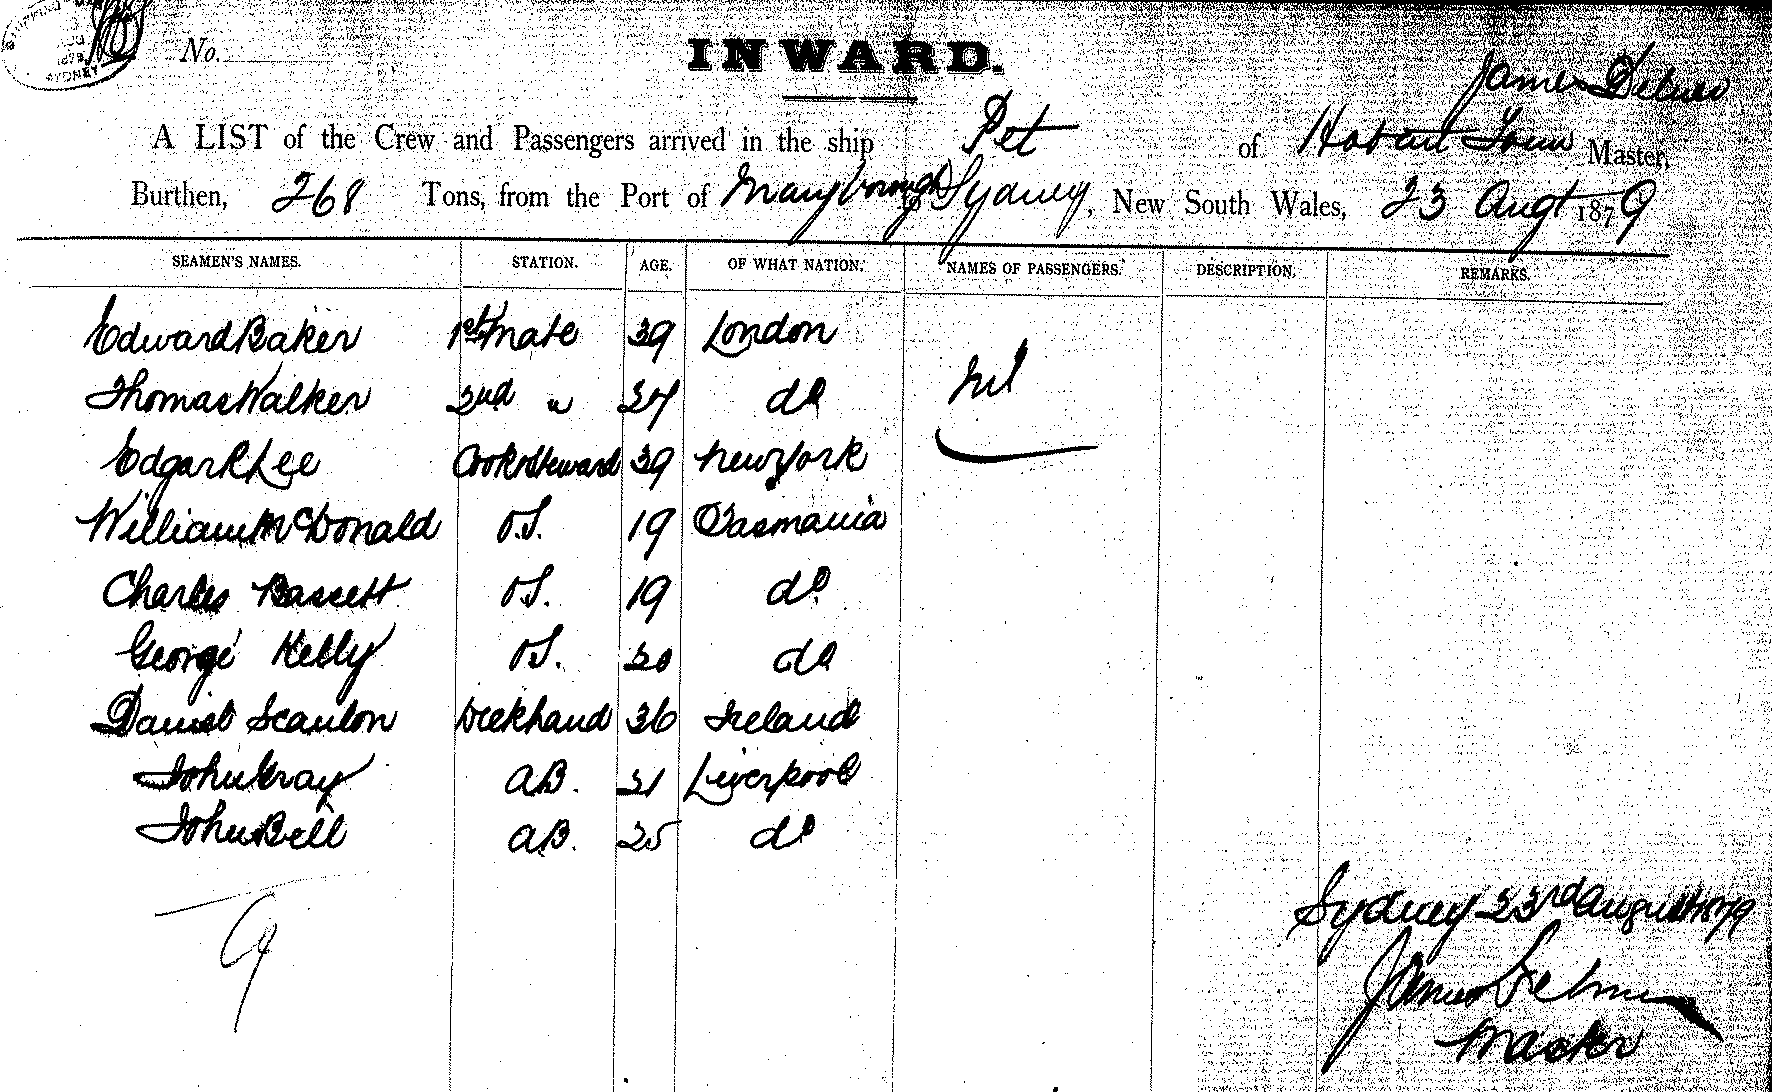 SYDNEY
No.
INWARD.
James
A LIST of the Crew and Passengers arrived in the ship Pet of Hobart Town Master,
Burthen, 268 Tons, from the Port of Maryborough to Sydney, New South Wales, 23 Augt 1879
SEAMEN'S NAMES. STATION. AGE. OF WHAT NATION. NAMES OF PASSENGERS. DESCRIPTION. REMARKS.
Edward Baker 1st Mate 39 London
Thomas Walker 2nd " do Nil
Edgar R Lee Cook & Steward 39 New York
William McDonald O.S. 19 Tasmania
Charles Bassett O.S. 19 do
George Kelly O.S. 20 do
Daniel Scanlon Deckhand 36 Ireland
John Gray AB. 21 Liverpool
John Bell AB. 25 do
Sydney 23rd August 1879
9
James
Master